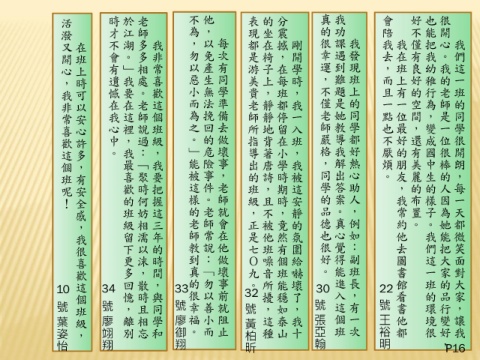 我們這一班的同學很開朗，每一天都微笑面對大家，讓我
很開心。我的老師是一位很棒的人因為她能把大家的品行變好
也能把我的幼稚行為，變成國中生的樣子。我們這一班的環境很
好不僅有良好的空間，還有美麗的布置。
我在班上有一位最好的朋友，我常約他去圖書館看書他都
會陪我去，而且一點也不厭煩。
22 號王裕明
我發現班上的同學都好熱心助人，例如：副班長，有一次
我功課遇到難題是她教導我解出答案。真心覺得能進入這個班
真的很幸運，不僅老師嚴格，同學的品德也很好。
30 號張亞翰
剛開學時，我一入班，我被這安靜的氛圍給嚇壞了，我十
分震撼，在每班都停留在小學時期時，竟然有個班能穩如泰山
的坐在椅子上，靜靜地背著唐詩，且不被他班噪音所擾，這種
表現都是游美貴老師所指導出的班級，正是七０九。
32 號黃柏昕
每次有同學準備去做壞事，老師就會在他做壞事前就阻止
他，以免產生無法挽回的危險事件。老師常說：「勿以善小而
不為，勿以惡小而為之。」能被這樣的老師教到真的很幸福。
33 號御翔
我非常喜歡這個班級，我要把握這三年的時間，與同學和
老師多多相處。老師說過：「聚時何妨相濡以沫，散時且相忘
於江湖。」我要在這裡，我最喜歡的班級留下更多回憶，離別
時才不會有遺憾在我心中。
34 號廖翊翔
在班上時可以安心許多，有安全感，我很喜歡這個班級，
活潑又開心，我非常喜歡這個班呢！
10 號葉姿怡
P16